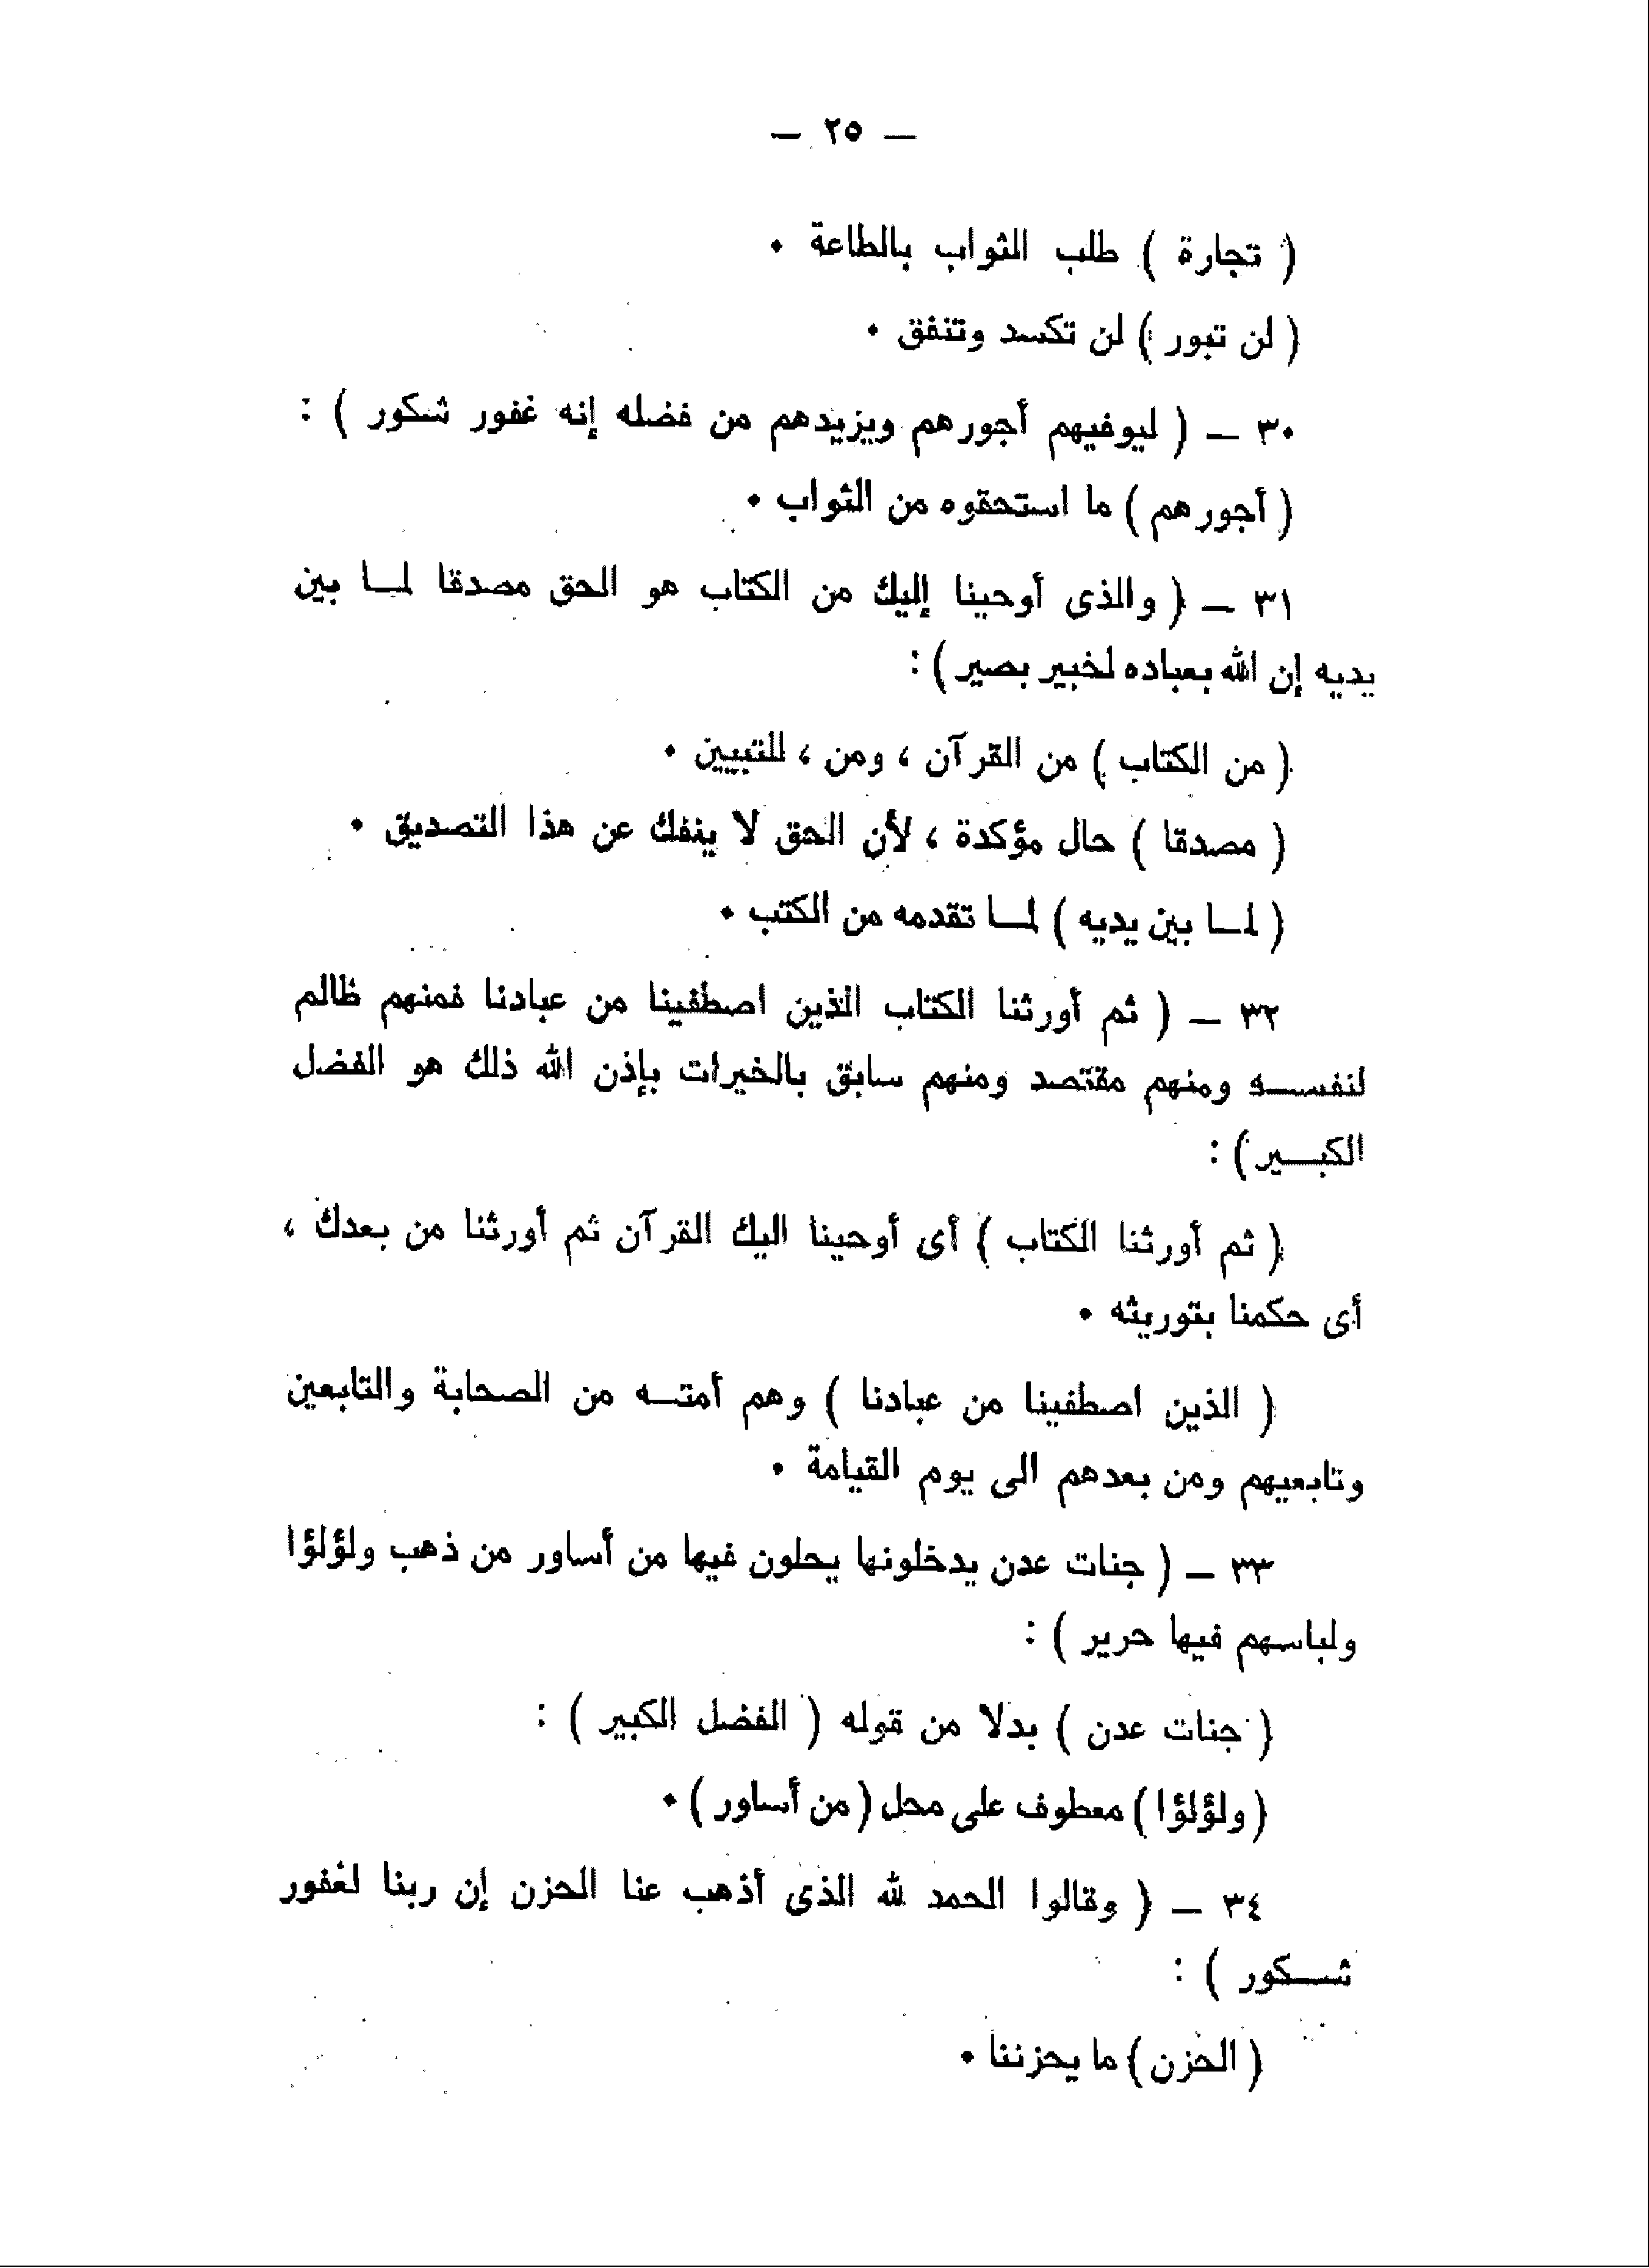 — ٢٥ —
( تجارة ) طلب الثواب بالطاعة ٠
( لن تبور ) لن تكسد وتنفق ٠
٣٠ — ( ليوفيهم أجورهم ويزيدهم من فضله إنه غفور شكور ) :
( أجورهم ) ما استحقوه من الثواب ٠
٣١ — ( والذى أوحينا إليك من الكتاب هو الحق مصدقا لمــا بين
يديه إن الله بعباده لخبير بصير ) :
( من الكتاب ) من القرآن ، ومن ، للتبيين ٠
( مصدقا ) حال مؤكدة ، لأن الحق لا ينفك عن هذا التصديق ٠
( لمــا بين يديه ) لمــا تقدمه من الكتب ٠
٣٢ — ( ثم أورثنا الكتاب الذين اصطفينا من عبادنا فمنهم ظالم
لنفســـه ومنهم مقتصد ومنهم سابق بالخيرات بإذن الله ذلك هو الفضل
الكبـــير ) :
( ثم أورثنا الكتاب ) أى أوحينا اليك القرآن ثم أورثنا من بعدك ،
أى حكمنا بتوريثه ٠
( الذين اصطفينا من عبادنا ) وهم أمتــه من الصحابة والتابعين
وتابعيهم ومن بعدهم الى يوم القيامة ٠
٣٣ — ( جنات عدن يدخلونها يحلون فيها من أساور من ذهب ولؤلؤا
ولباسهم فيها حرير ) :
( جنات عدن ) بدلا من قوله ( الفضل الكبير ) :
( ولؤلؤا ) معطوف على محل ( من أساور ) ٠
٣٤ — ( وقالوا الحمد لله الذى أذهب عنا الحزن إن ربنا لغفور
شـــكور ) :
( الحزن ) ما يحزننا ٠